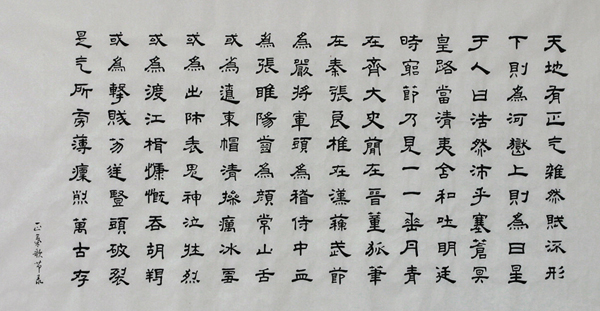 天地有正气雜然賦流形
下則為河嶽上則為日星
于人曰浩然沛乎塞蒼冥
皇路當清夷含和吐明廷
時窮節乃見一一垂丹青
在齊大史簡在晉董狐筆
在秦張良椎在漢蘇武節
為嚴將軍頭為嵇侍中血
為張睢陽齒為顏常山舌
或為遼東帽清操厲冰雪
或為出師表鬼神泣壯烈
或為渡江楫慷慨吞胡羯
或為擊賊笏逆豎頭破裂
是气所旁薄凜烈萬古存
正氣歌節录